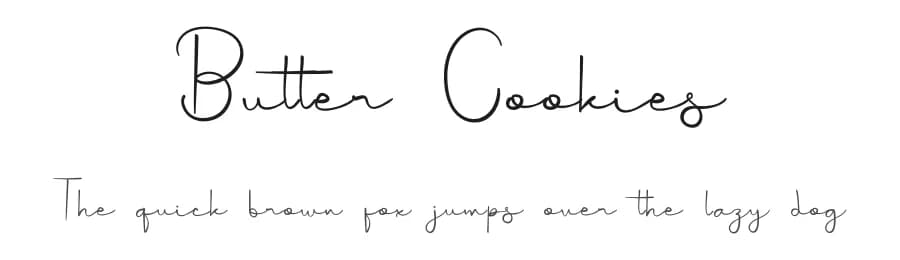 Butter Cookies
The quick brown fox jumps over the lazy dog